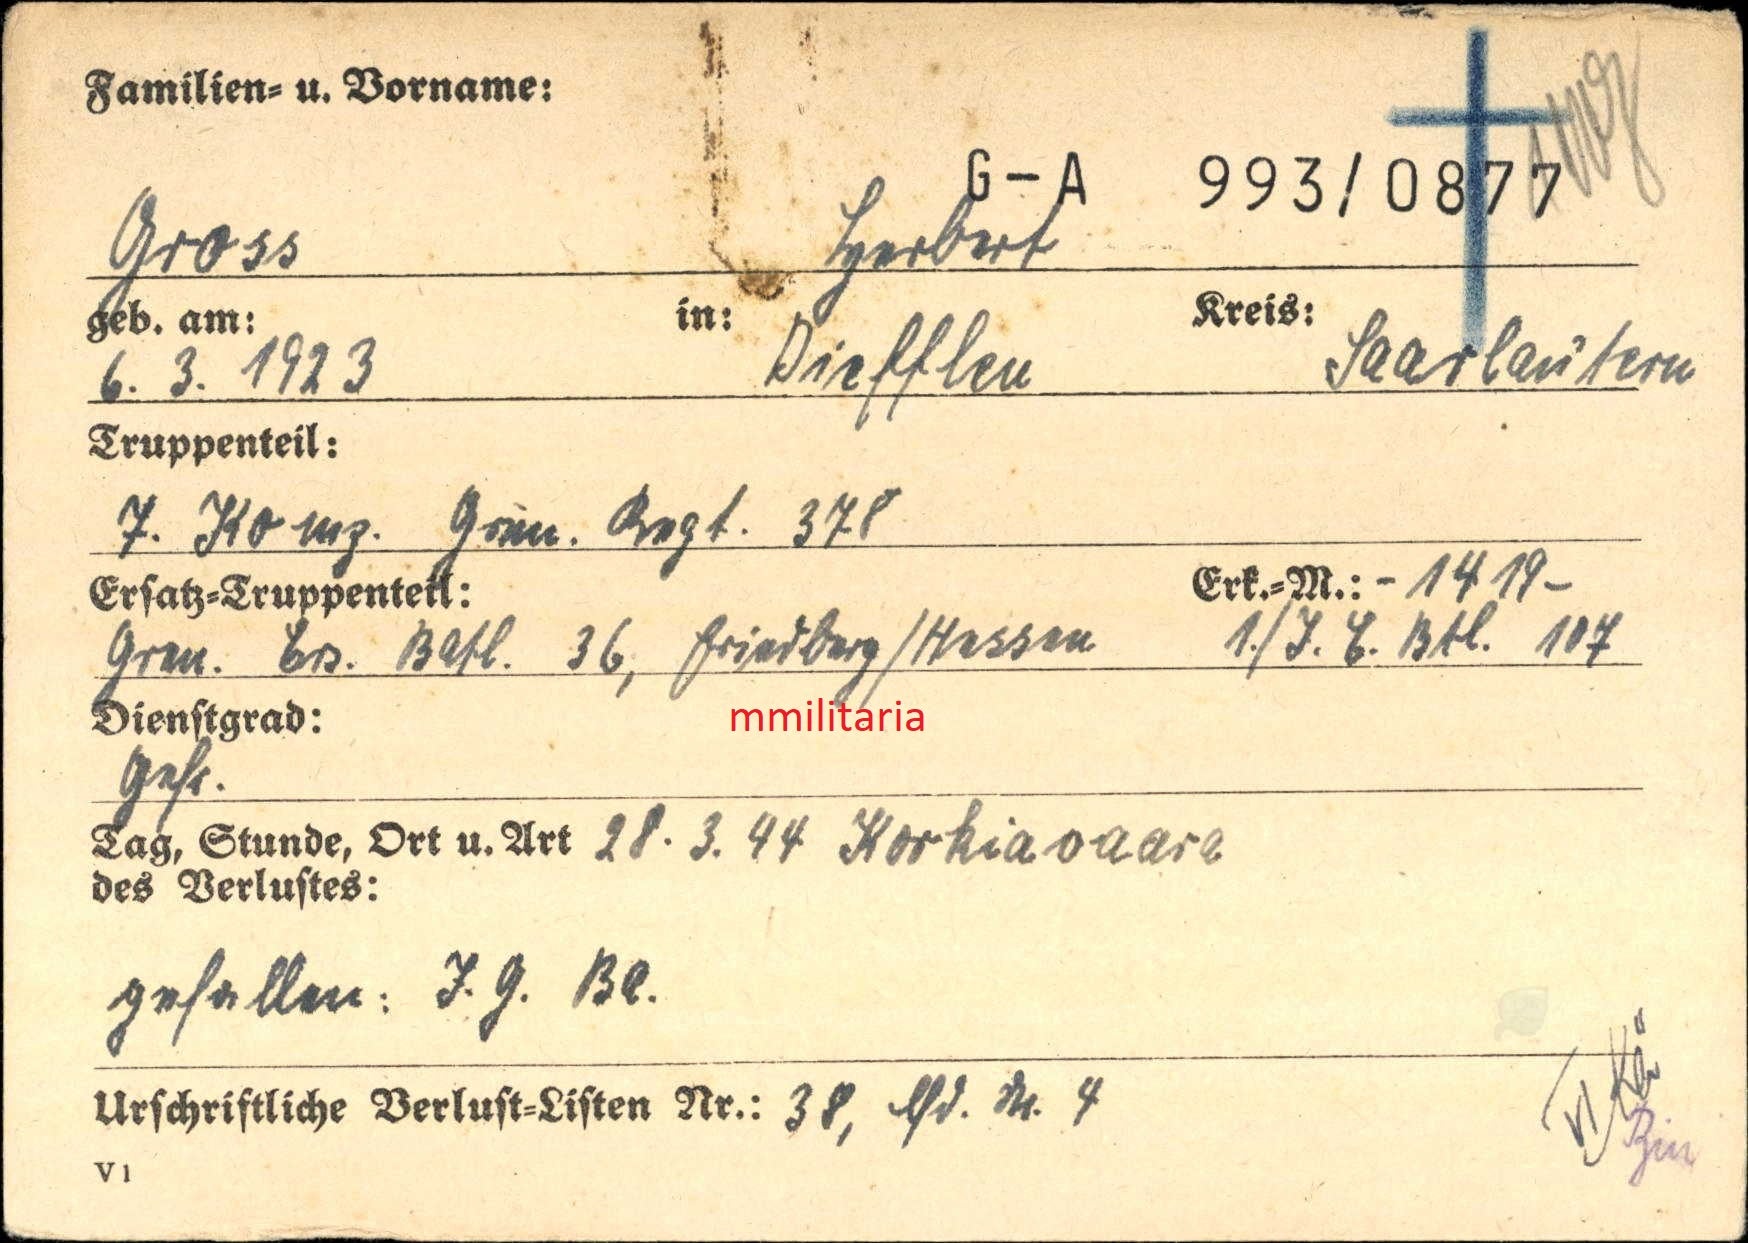 Familien- u. Vorname:
G-A 993/0877
Gross Herbert
geb. am: in: Kreis:
6. 3. 1923 Diefflen Saarlautern
Truppenteil:
7. Komp. Gren. Regt. 378
Ersatz-Truppenteil: Erk.-M.: - 1419-
Gren. Ers. Batl. 36, Friedberg/Hessen 1./J. E. Btl. 107
mmilitaria
Dienstgrad:
Gefr.
Tag, Stunde, Ort u. Art 28. 3. 44 Korkiavaara
des Verlustes:
gefallen: J. G. Ba.
Urschriftliche Verlust-Listen Nr.: 38, lfd. Nr. 4
V1